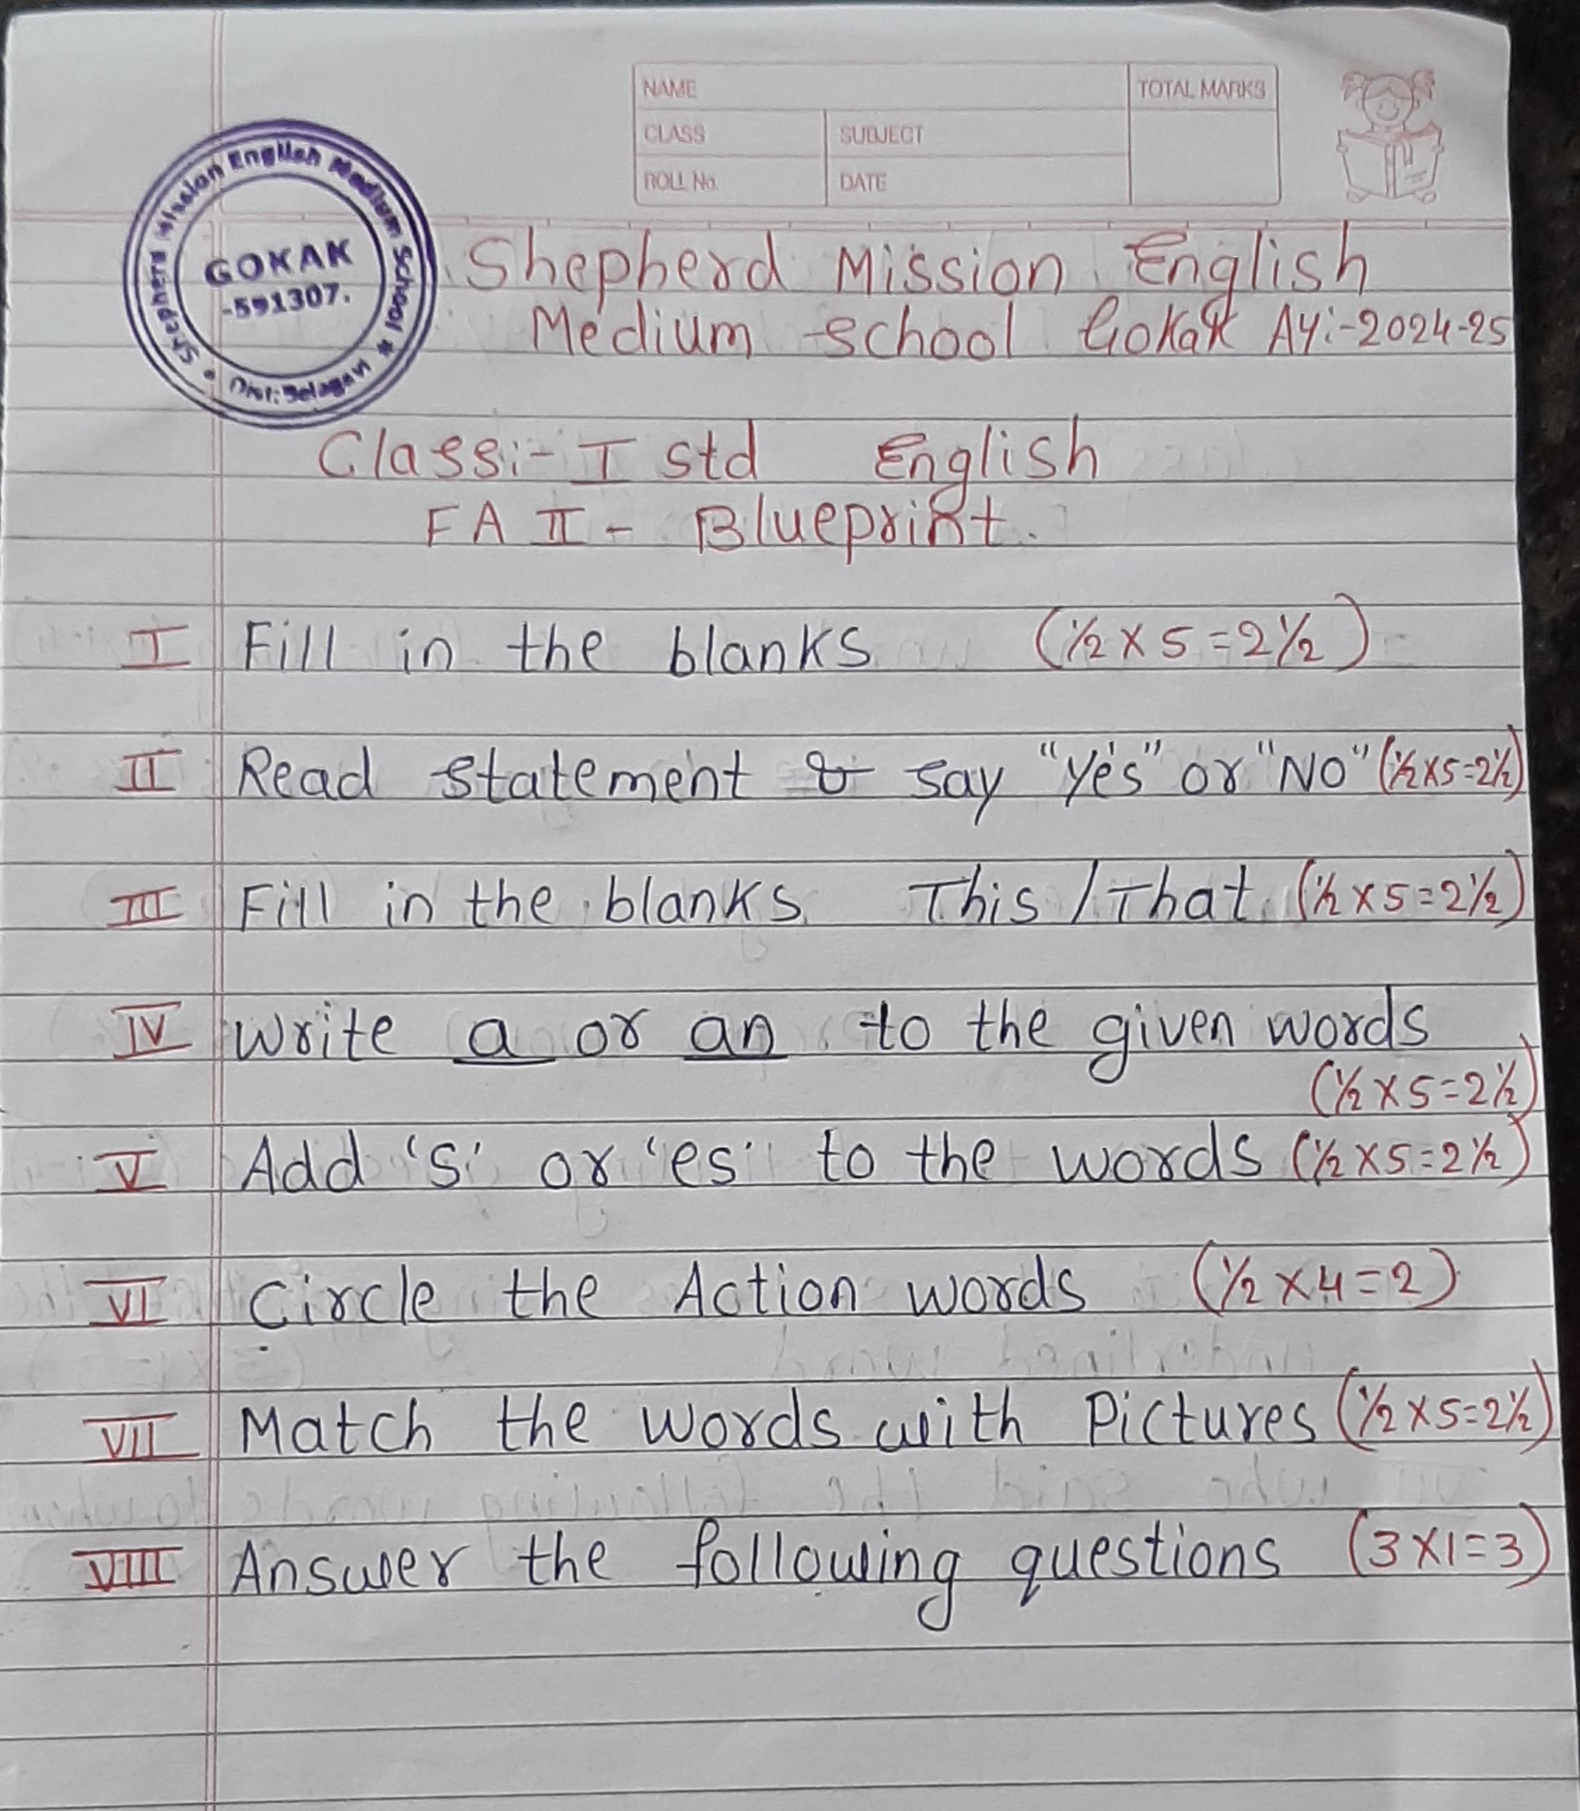 NAME
TOTAL MARKS
CLASS
SUBJECT
ROLL No.
DATE
Shepherd Mission English Medium School
GOKAK
-591307.
Dist: Belagavi
Shepherd Mission English
Medium school Gokak AY:-2024-25
Class:- I std English
FA II - Blueprint.
I Fill in the blanks (½ x 5 = 2½)
II Read statement & say "Yes" or "NO" (½ x 5 = 2½)
III Fill in the blanks This / That (½ x 5 = 2½)
IV write a or an to the given words
(½ x 5 = 2½)
V Add 's' or 'es' to the words (½ x 5 = 2½)
VI Circle the Action words (½ x 4 = 2)
VII Match the words with Pictures (½ x 5 = 2½)
VIII Answer the following questions (3 x 1 = 3)